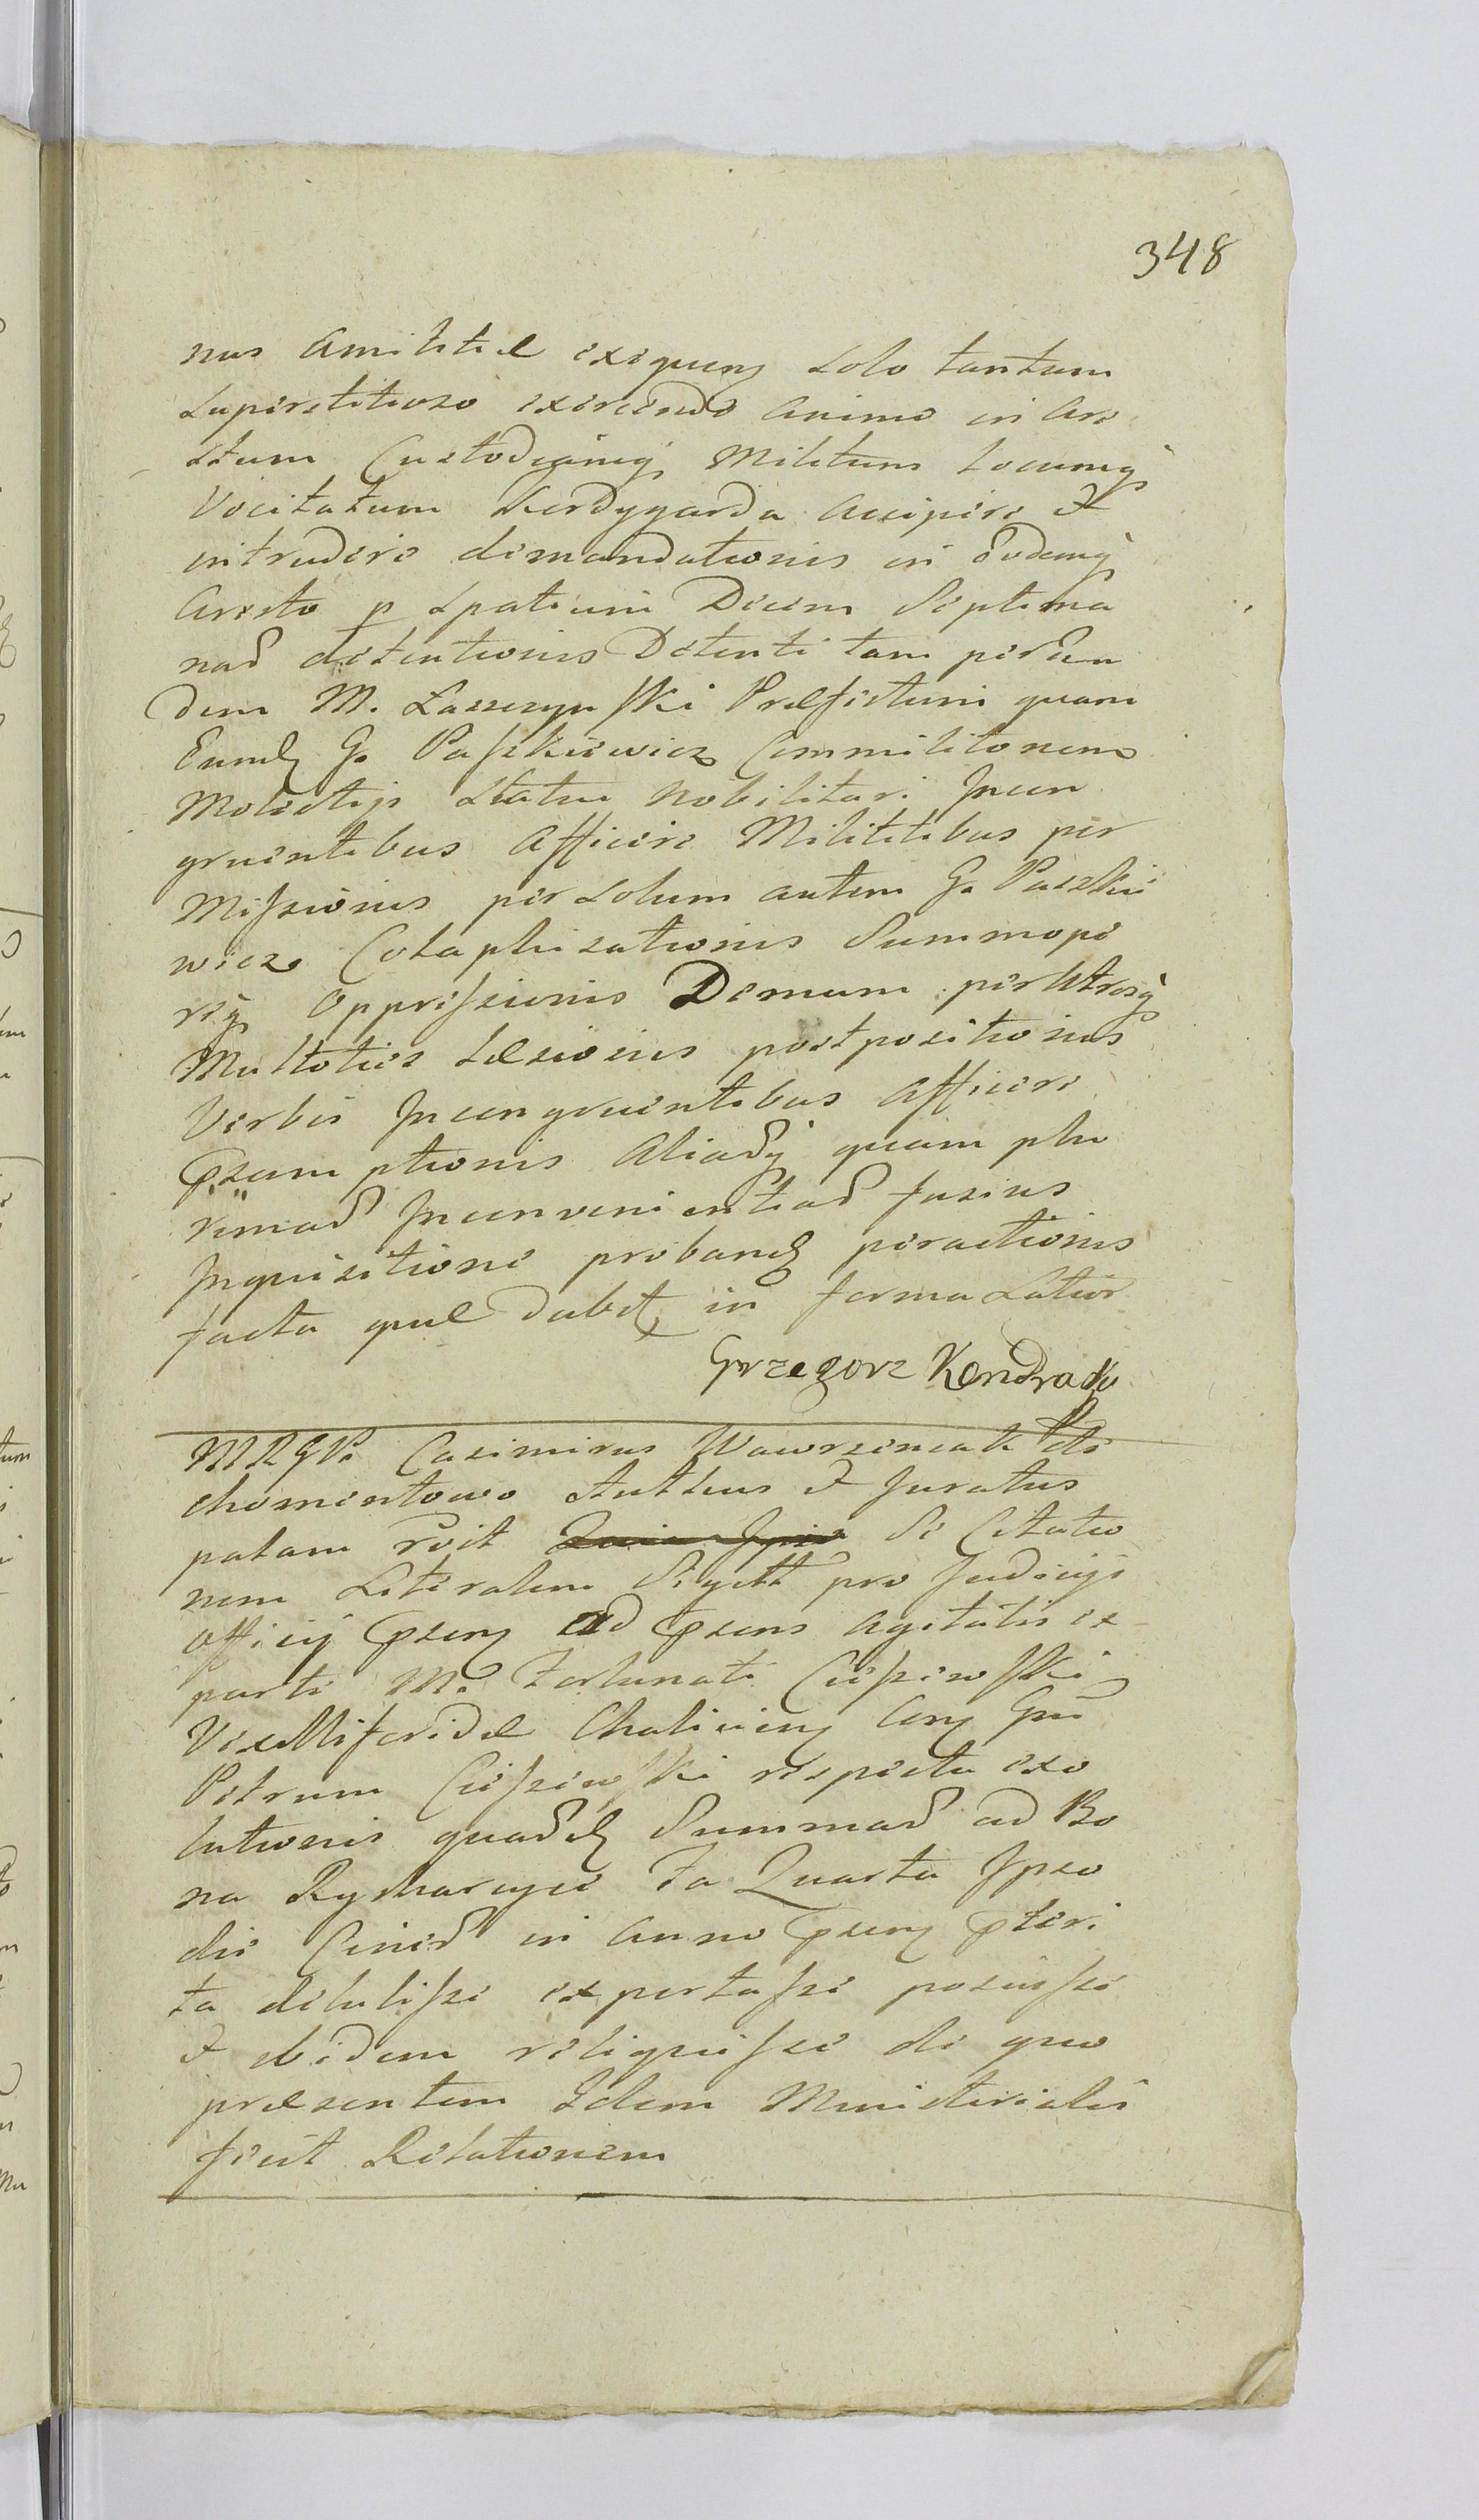 348
nus Amititiæ exequens Solo tantum
Superstitioso exercendo Animo in Are
stum Custodiamq Militum Locumq
Vocitatum Kordygarda Accipere et
intrudere demandationis in Eodemq
Aresto p Spatium Decem Septima
nas detentionis Detenti tam per Eun
dem M. Laszczynski Præfectum quam
Eund G. Paszkiewicz Commilitonem
Molestijs Statui Nobilitari Incon
gruentibus Afficere Militibus per
Missionis per Solum autem G. Paszkie
wicz Colaphisationis Summope
req Oppressionis Demum per Utrosq
Multoties Læsionis postpositionis
Verbis Incongruentibus Afficere
Psumptionis Aliasq quam plu
rimas Inconvenientias fusius
Inquisitione proband peractionis
facta quæ dabit in forma Latior
Grzegorz Kondracki
MRGP. Casimirus Wawrzeniak de
chomentowo Authus et Juratus
palam rcit Se Citatio
nem Literalem Sigilt pro Judicijs
Officij Psens ad Psens Agitatis ex
parte M. Fortunati Cieszewski
Vexilliferidæ Chelinens Cons Gnu
Petrum Cieszewski respectu exo
lutionis quasd Summas ad Bo
na Rycharcyce Fa Quarta Ipso
die Cinerum in Anno Psens Pteri
ta detulisse exportasse posuisse
et ibidem reliquisse de quo
præsentem Idem Ministerialis
fecit Relationem